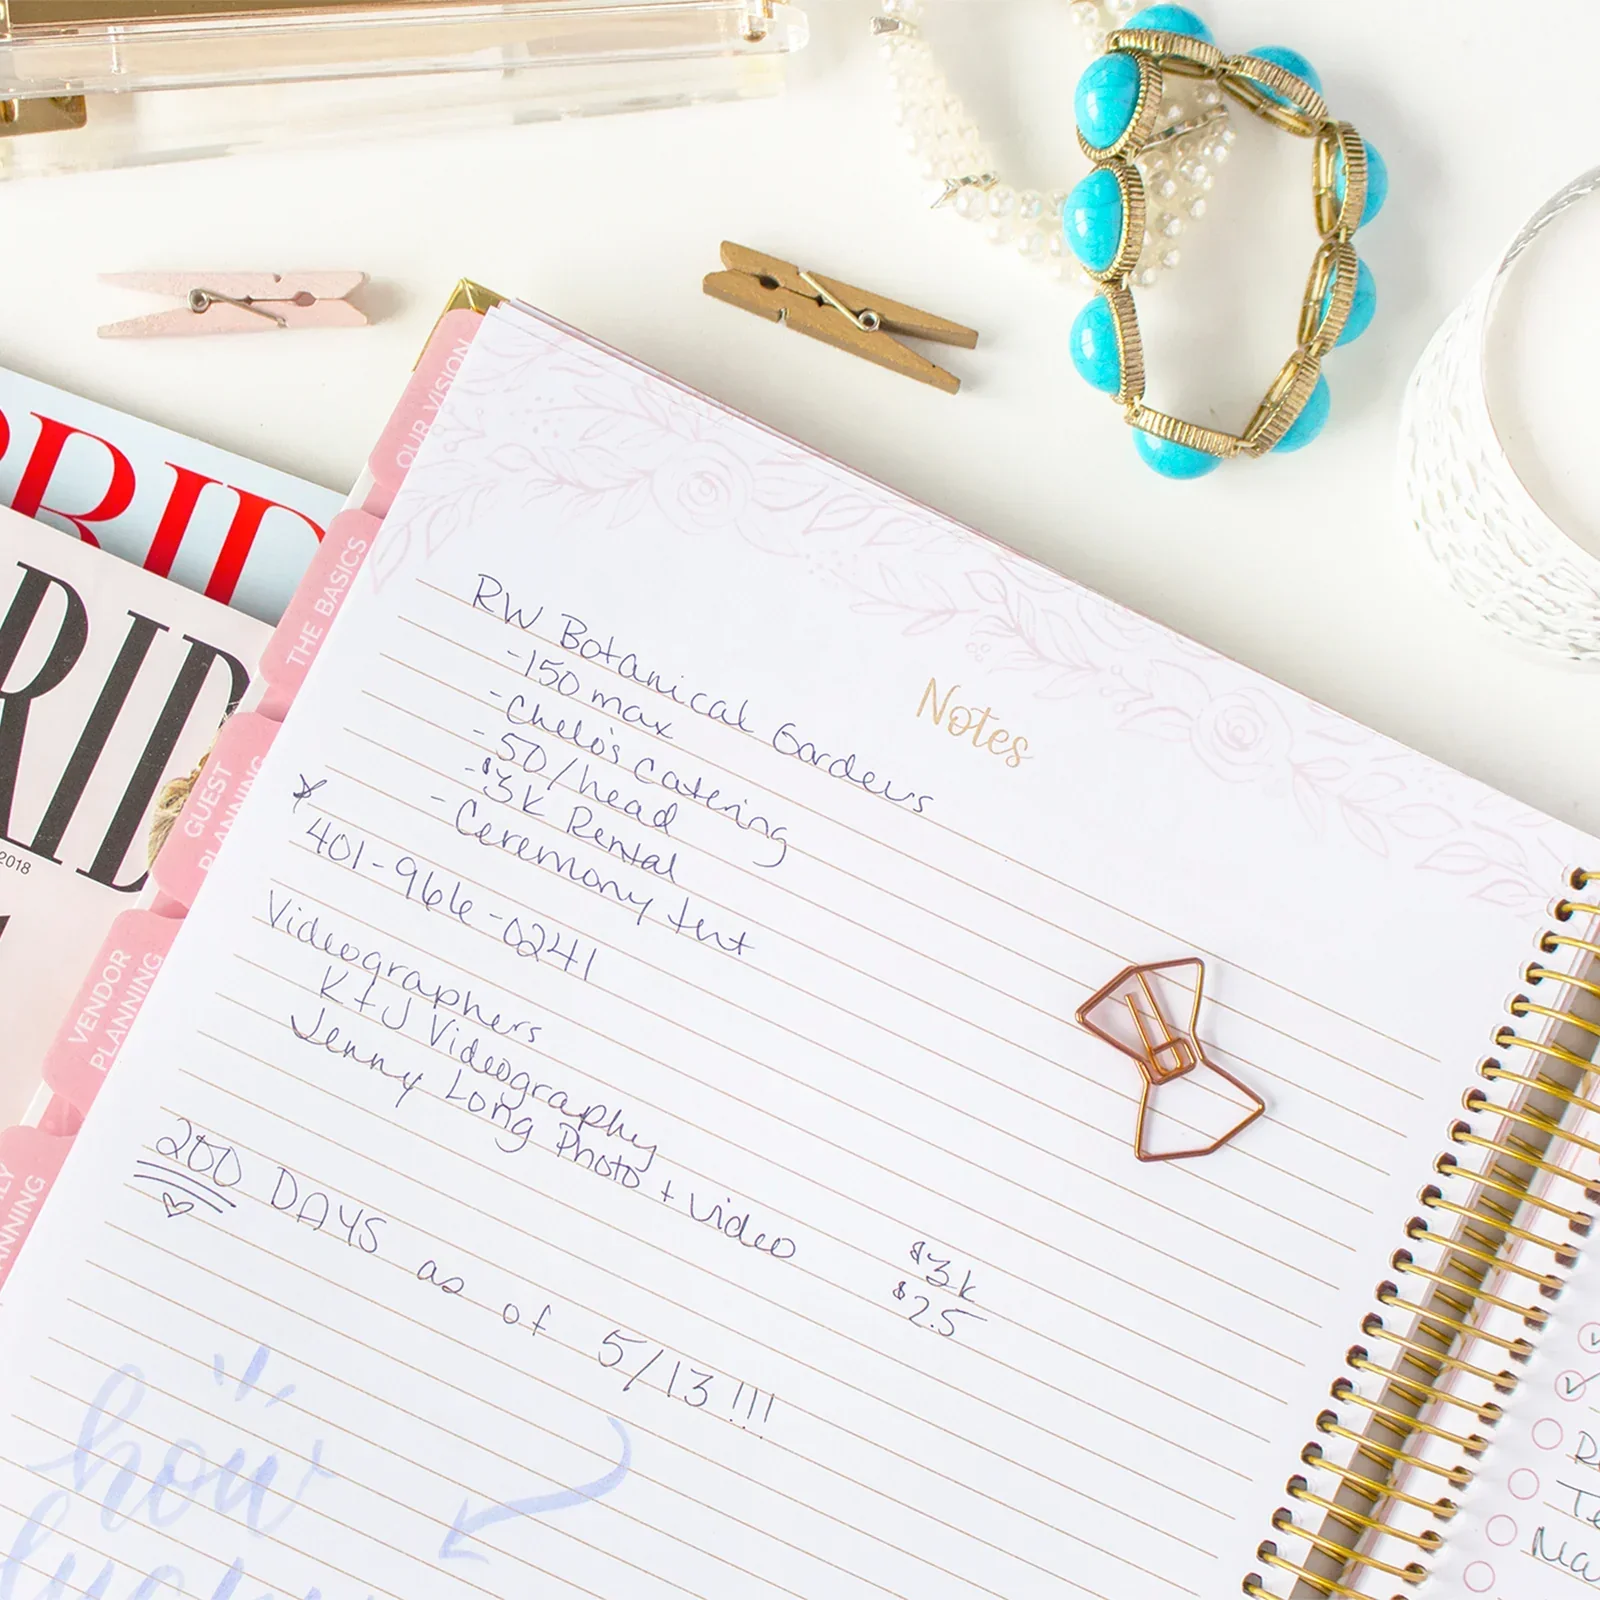 OUR VISION
THE BASICS
GUEST
PLANNING
VENDOR
PLANNING
BRID
RID
2018
Notes
RW Botanical Gardens
-150 max
-Chelo's Catering
-50/head
-$3k Rental
-Ceremony tent
401-966-0241
Videographers
K+J Videography $3k
Jenny Long Photo + Video $2.5
200 DAYS as of 5/13!!!
how